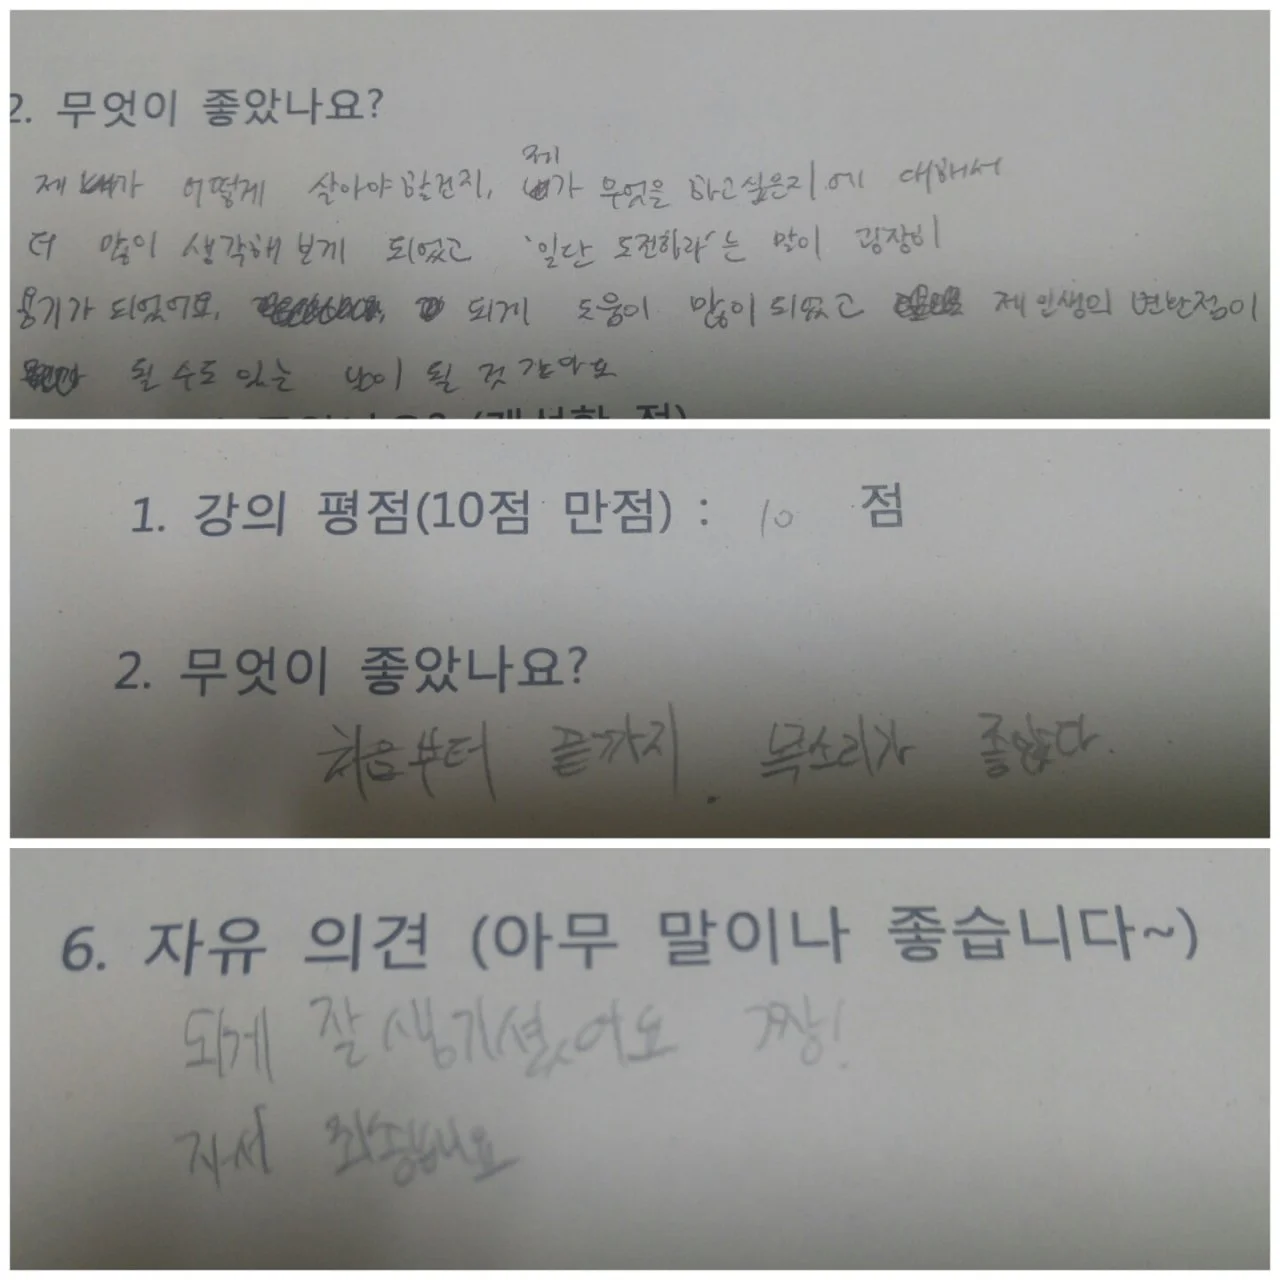 2. 무엇이 좋았나요?
제가 어떻게 살아야 할건지, 제가 무엇을 하고싶은지에 대해서
더 많이 생각해보게 되었고 '일단 도전하라'는 말이 굉장히
용기가 되었어요, 되게 도움이 많이 되었고 제 인생의 변환점이
될 수도 있는 날이 될 것 같아요
1. 강의 평점(10점 만점) : 10 점
2. 무엇이 좋았나요?
처음부터 끝까지. 목소리가 좋았다.
6. 자유 의견 (아무 말이나 좋습니다~)
되게 잘생기셨어요 짱!
자서 죄송합니다